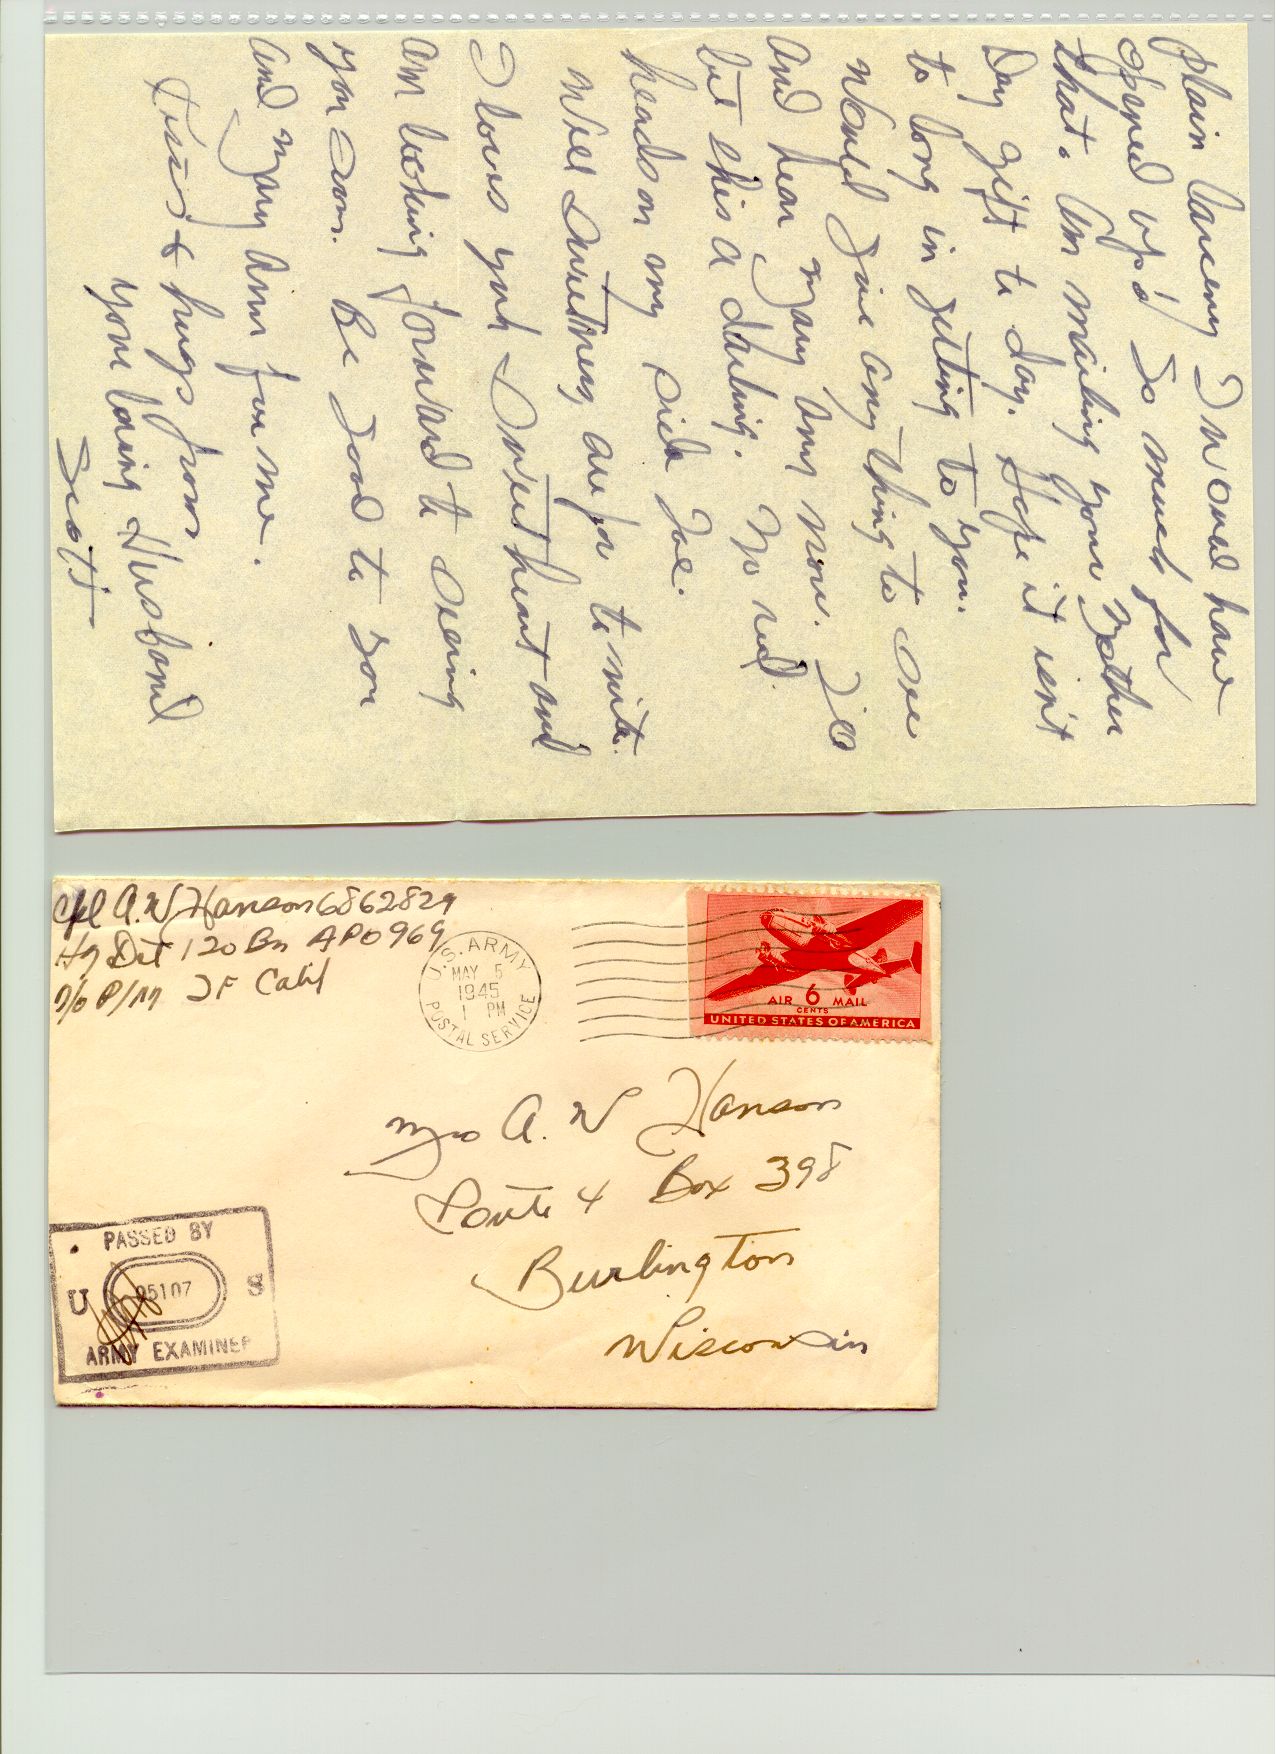 plain lonceny I would have
opened up'd so much for
that. Am mailing your Mother
Day gift to day. Hope it isn't
to long in getting to you.
Would give any thing to see
and hear Mary Ann now. I'll
bet shes a darling. No red
heads on my side Joe.
Well Sweetney are for to nite.
I loves yuh Sweetheart and
am looking forward to seeing
you soon. Be good to you
and Mary Ann for me.
Kisses & hugs from
your loving Husband
Scott
Cpl A. W. Hanson 6862829
Hq Det 120 Bn APO 969
c/o P/M SF Calif
U.S. ARMY
MAY 5
1945
1 PM
POSTAL SERVICE
AIR 6 MAIL
CENTS
UNITED STATES OF AMERICA
Mrs A. W Hanson
Route 4 Box 398
Burlington
Wisconsin
PASSED BY
U 05107 S
ARMY EXAMINER